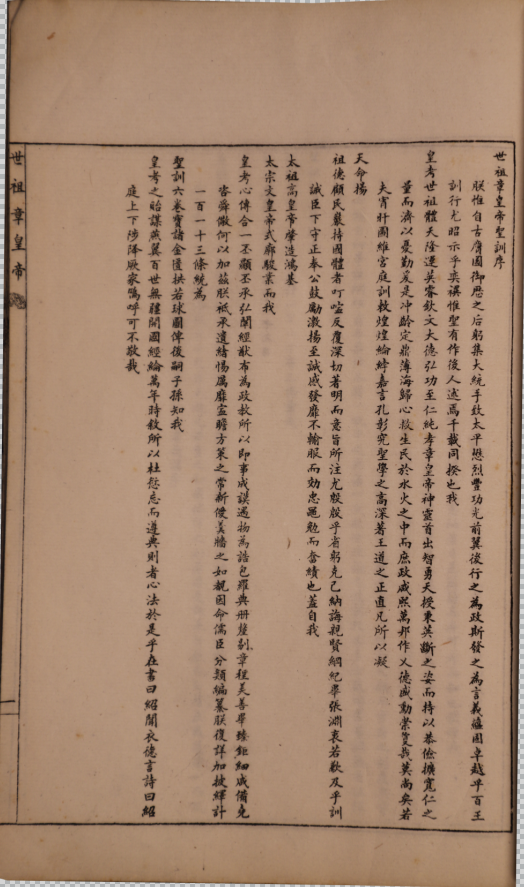 世祖章皇帝聖訓序
朕惟自古膺圖御歷之后躬集大統手致太平懋烈豐功光前翼後行之為政斯發之為言義蘊固卓越乎百王
訓行尤昭示乎奕禩惟聖有作後人述焉千載同揆也我
皇考世祖體天隆運英睿欽文大德弘功至仁純孝章皇帝神靈首出智勇天授秉英斷之姿而持以恭儉擴寬仁之
量而濟以憂勤爰是冲齡定鼎薄海歸心救生民於水火之中而庶政咸熙萬邦作乂德盛勳崇莫尚矣若
夫宵旰圖維宮庭訓敕煌煌綸綍嘉言孔彰究聖學之高深著王道之正直凡所以凝
天命揚
祖德顧民喦持國體者叮嚀反覆深切著明而意旨所注尤殷殷乎省躬克己納誨親賢綱紀畢張淵衷若歉及乎訓
誡臣下守正奉公鼓勵激揚至誠感發靡不輸服而効忠黽勉而奮績也蓋自我
太祖高皇帝肇造鴻基
太宗文皇帝式廓駿業而我
皇考心傳合一丕顯丕承弘闡經猷布為政教所以即事成謨遇物為誥包羅典册釐剔章程美善畢臻鉅細咸備堯
咨舜儆何以加茲朕祗承遺緒惕厲靡寍瞻方策之常新僾羹牆之如覩因命儒臣分類編纂朕復詳加披繹計
一百一十三條統為
聖訓六卷寶諸金匱拱若球圖俾後嗣子孫知我
皇考之貽謀燕翼百世無疆開國經綸萬年時敘所以杜愆忘而遵典則者心法於是乎在書曰紹聞衣德言詩曰紹
庭上下陟降厥家嗚呼可不敬哉
世祖章皇帝